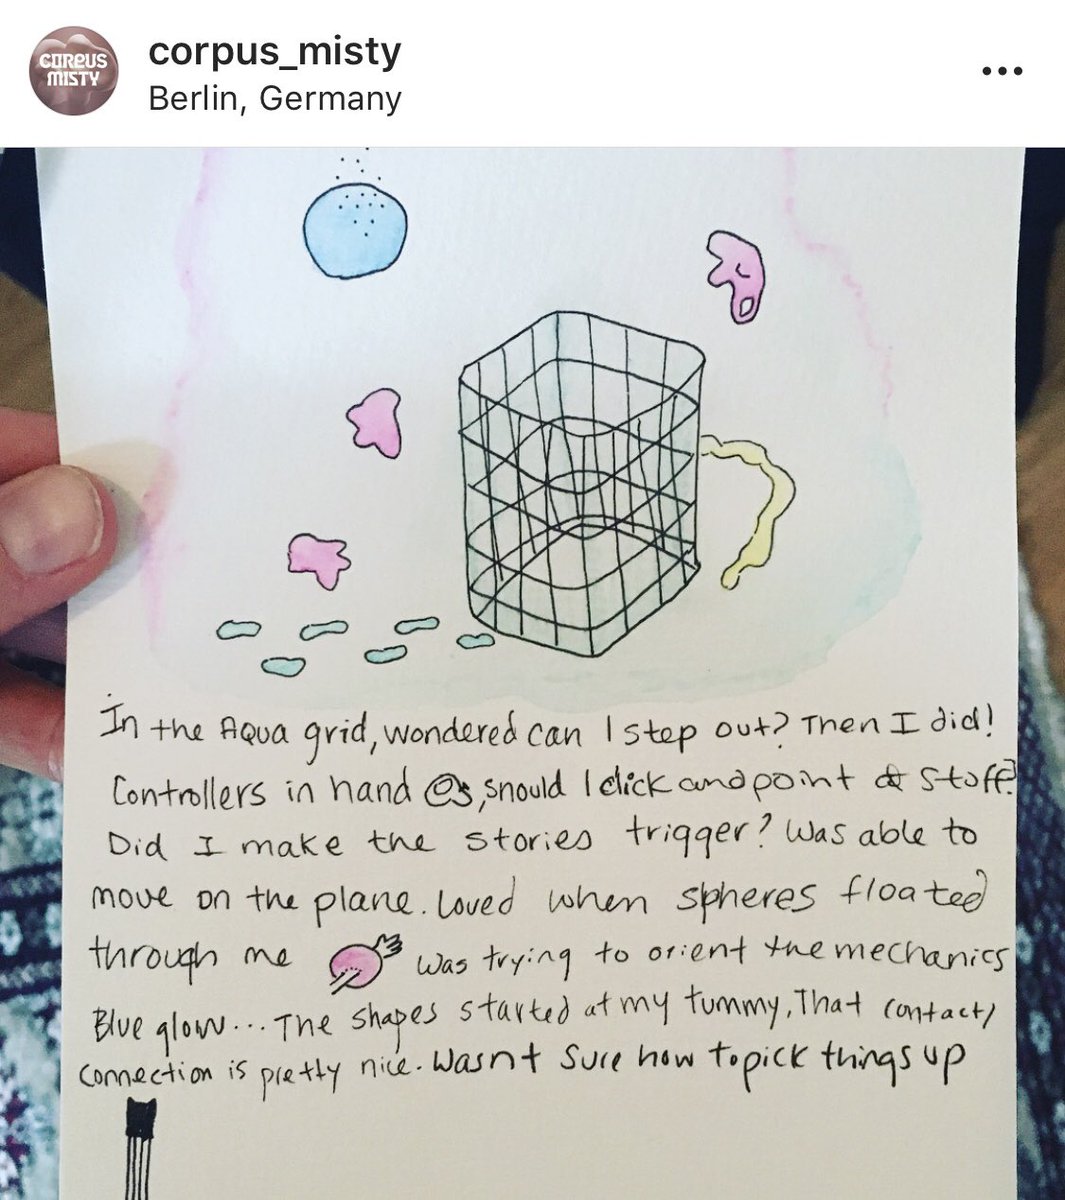 CORPUS
MISTY
corpus_misty
Berlin, Germany
In the Aqua grid, wondered can I step out? Then I did!
Controllers in hand, should I click and point & stoff?
Did I make the stories trigger? Was able to
move on the plane. Loved when spheres floated
through me Was trying to orient the mechanics
Blue glow... The shapes started at my tummy, That contact/
connection is pretty nice. Wasnt sure how to pick things up